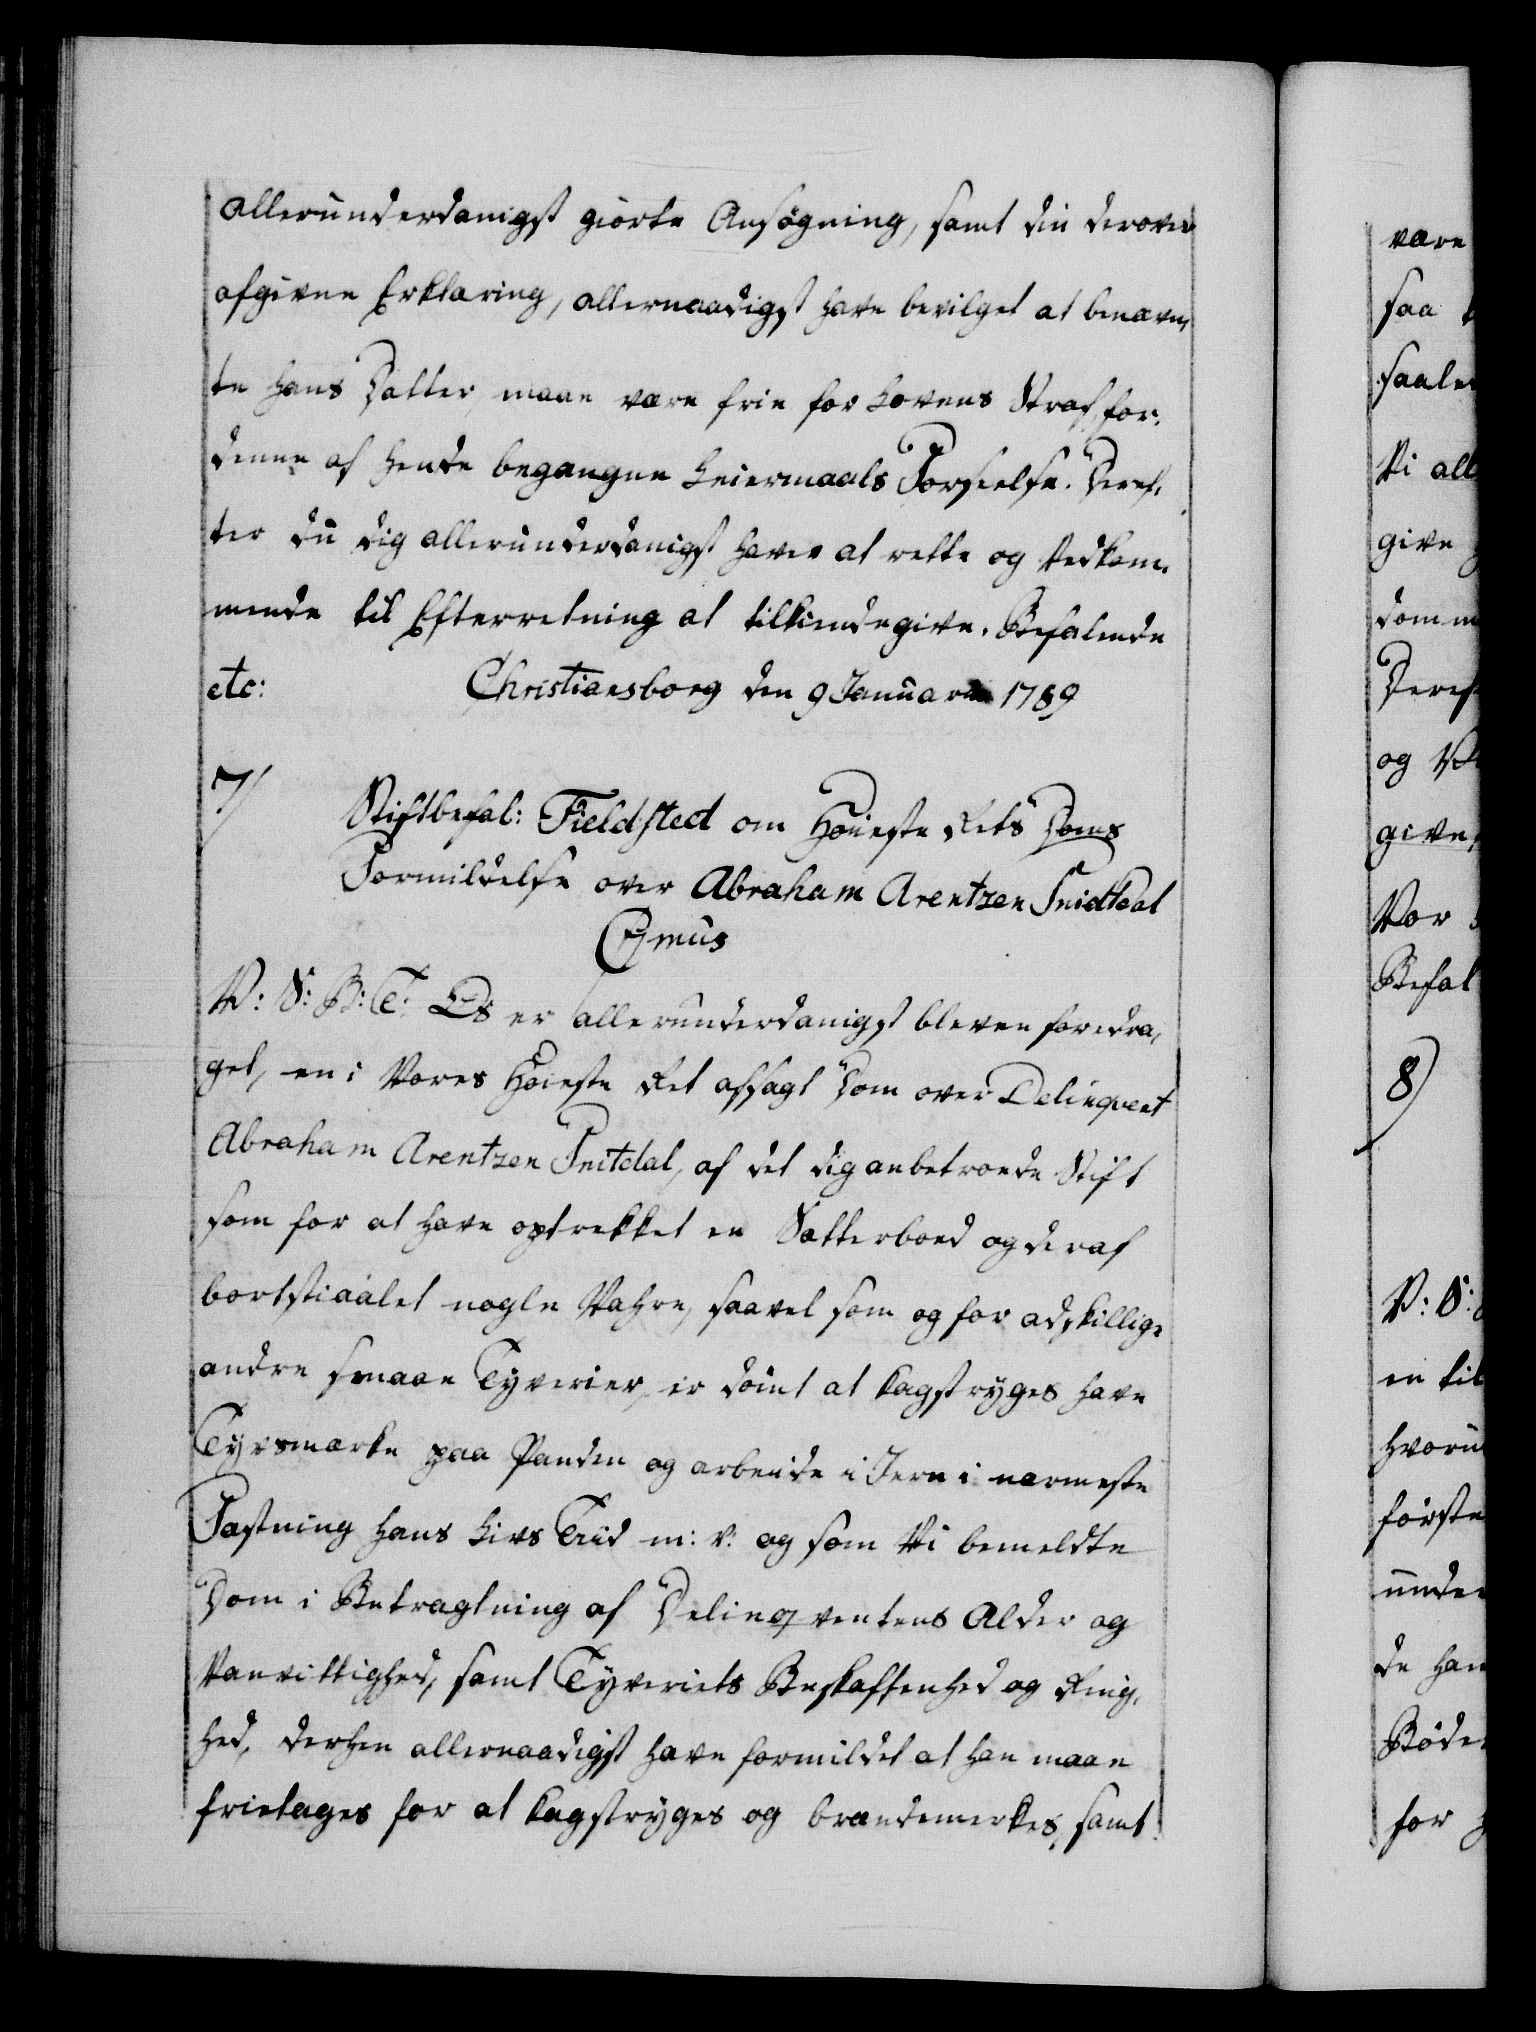 allerunderdanigst giorte Ansøgning, samt din derover
afgivne Erklæring, allernaadigst have bevilget at benævn,
te hans Datter, maae være frie for Lovens Straf, for,
denne af hende begangne Leiermaals Forseelse. Deref,
ter du dig allerunderdanigst haver at rette og Vedkom,
mende til Efterretning at tilkiendegive. Befalende
etc: Christiansborg den 9 Januarii 1789
7/
Stiftbefal: Fieldsted om Høieste Rets Doms
Formildelse over Abraham Arentzen Snidtdal
Cijmus
V: S: B: T: Os er allerunderdanigst bleven foredra,
get, en i Vores Høieste Ret afsagt Dom over Delinqvent
Abraham Arentzen Snitdal, af det dig anbetroede Stift
som for at have optrekket en Sætterboed og deraf
bortstiaalet nogle Vahre, saavel som og for adskillige
andre smaae Tyverier, er dømt at kagstryges have
Tyvsmærke paa Panden og arbeide i Jern i nærmeste
Fæstning hans Livs Tiid m: v: og som Vi bemeldte
Dom i Betragtning af Delinqventens Alder og
Vanvittighed, samt Tyveriets Beskaffenhed og Ring,
hed, derhen allernaadigst have formildet at han maae
frietages for at kagstryges og brændemerkes, samt
være
saa
saale
Vi all
give
domm
Deref
og V
give,
Vor
Befal
8)
V: S:
en til
hvoru
første
unde
de han
Bøde
for